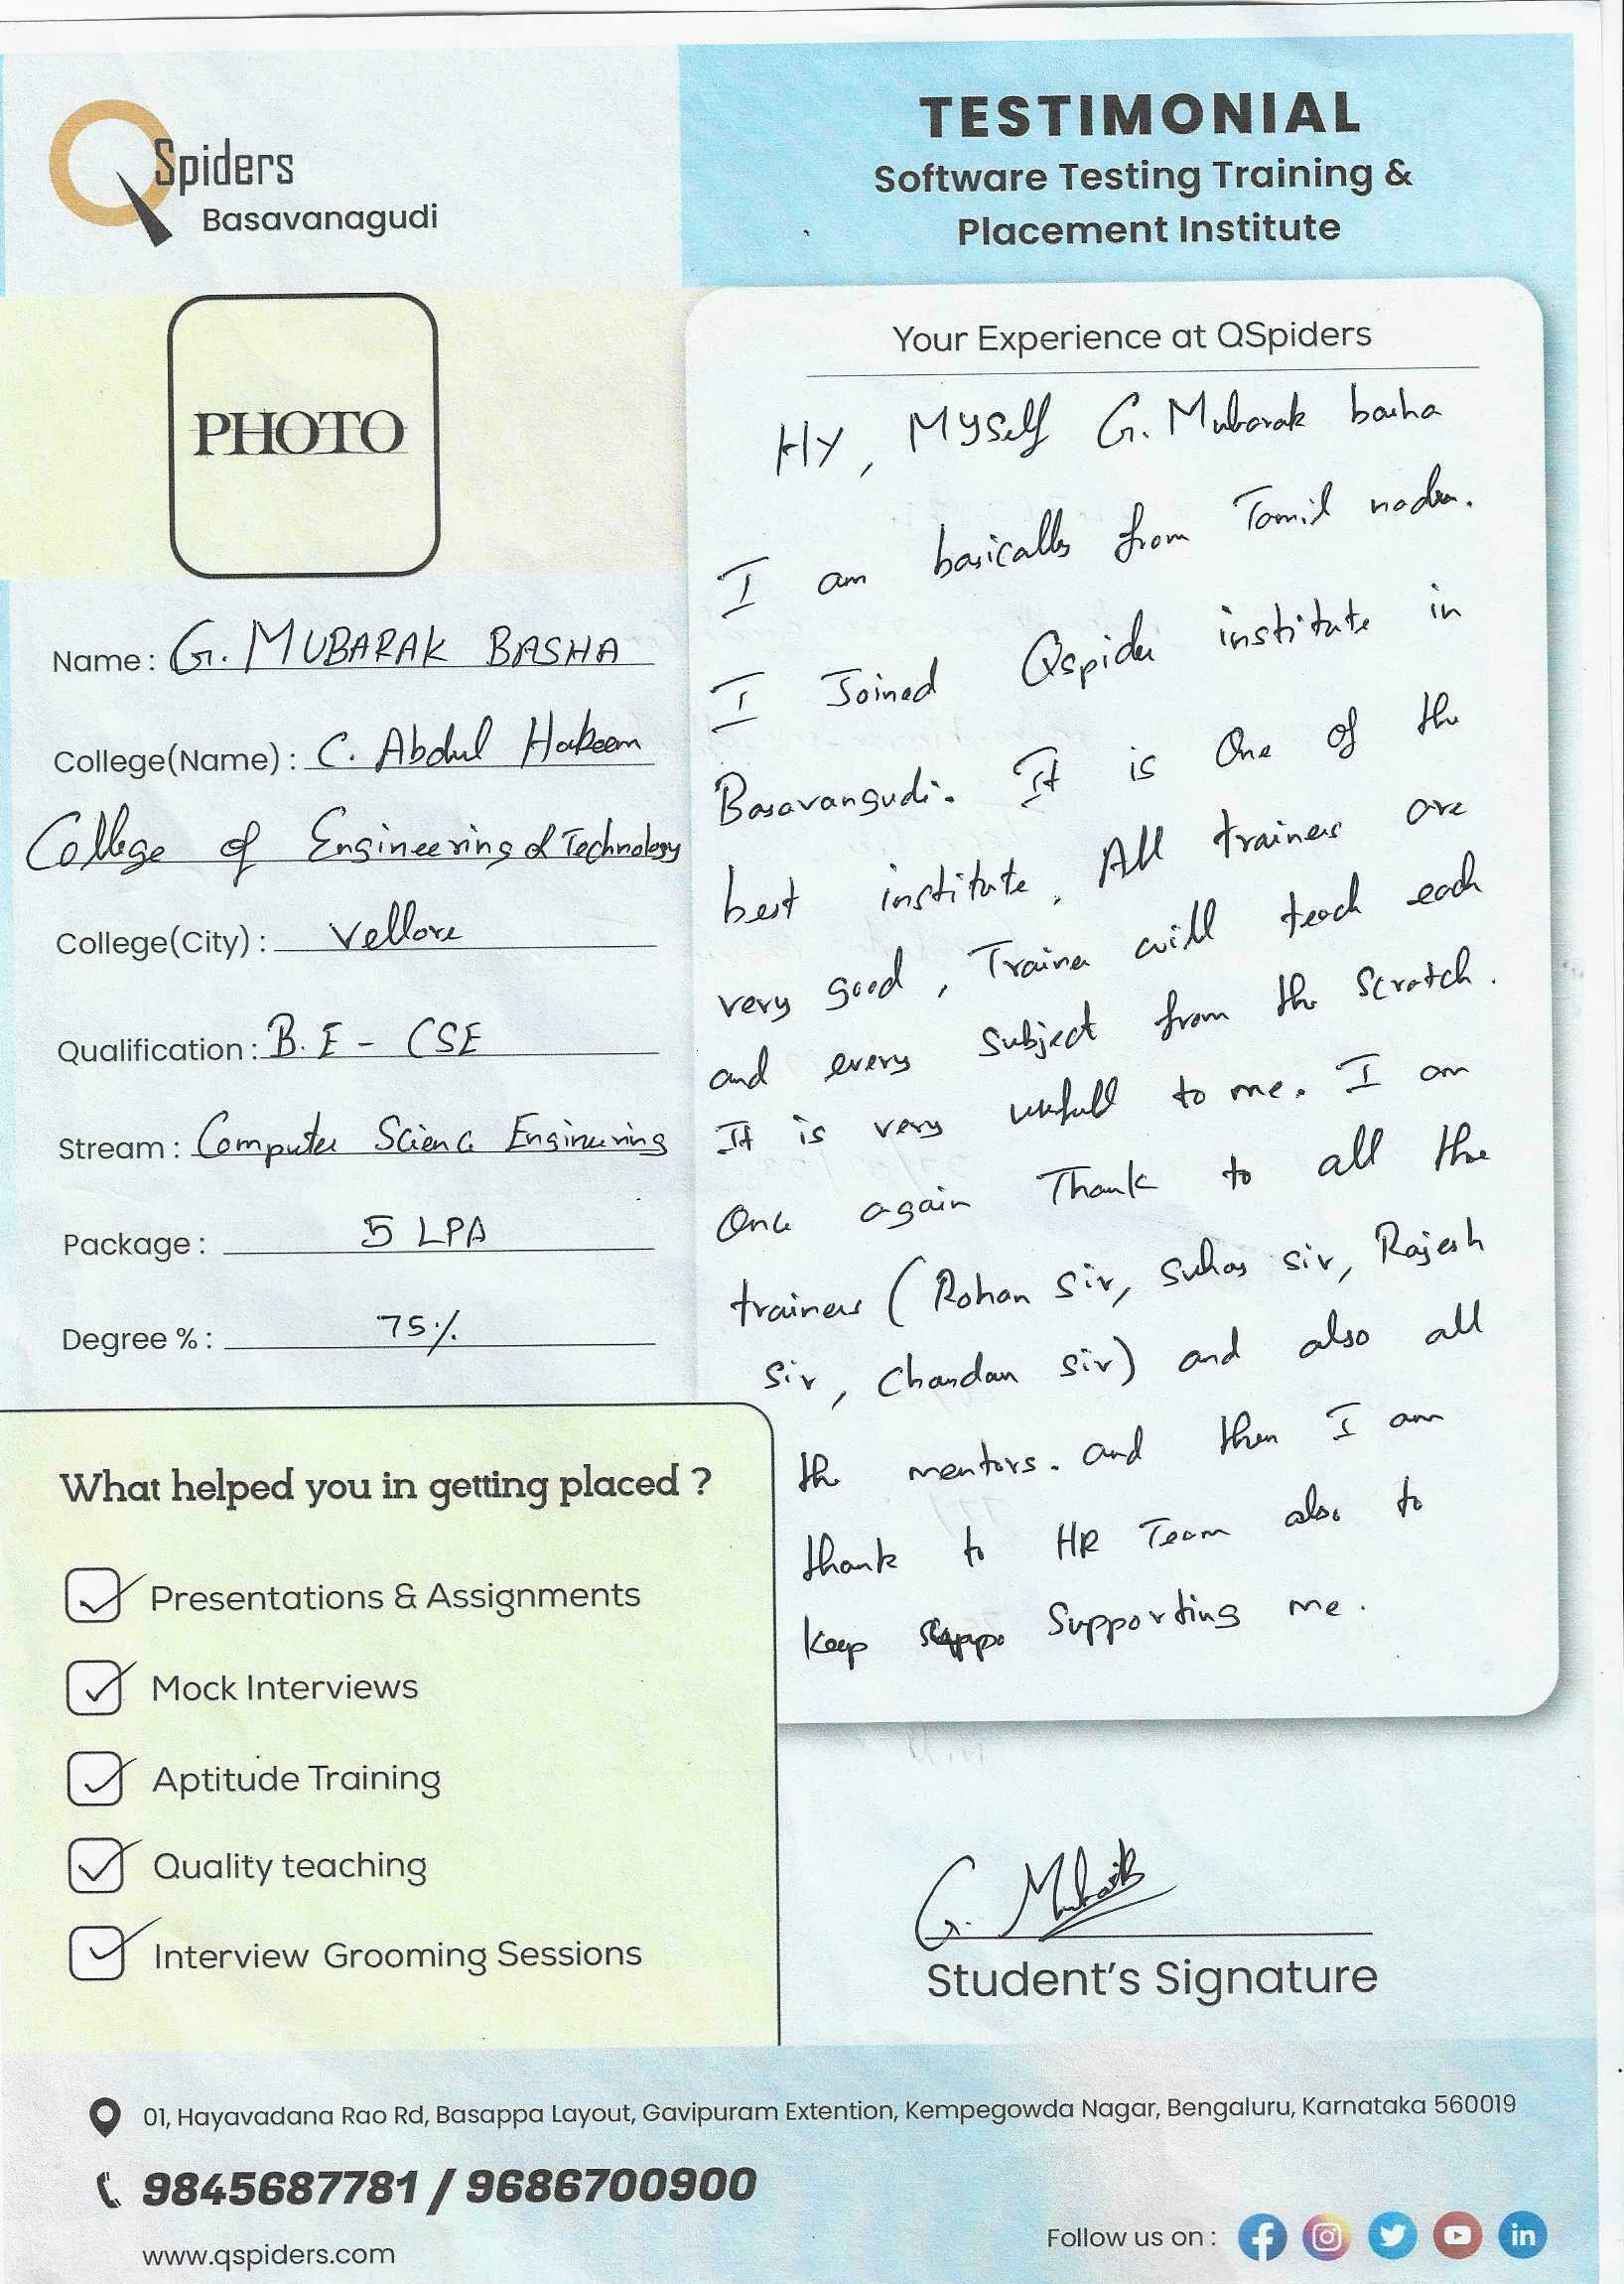 QSpiders
Basavanagudi
TESTIMONIAL
Software Testing Training &
Placement Institute
PHOTO
Name : G. MUBARAK BASHA
College(Name) : C. Abdul Hakeem
College of Engineering & Technology
College(City) : Vellore
Qualification : B.E - CSE
Stream : Computer Science Engineering
Package : 5 LPA
Degree % : 75%
What helped you in getting placed ?
Presentations & Assignments
Mock Interviews
Aptitude Training
Quality teaching
Interview Grooming Sessions
Your Experience at QSpiders
Hy, Myself G. Mubarak basha
I am basically from Tamil nadu.
I Joined Qspider institute in
Basavangudi. It is One of the
best institute, All trainers are
very good, Trainer will teach each
and every Subject from the Scratch.
It is very usefull to me. I am
Once again Thank to all the
trainers (Rohan Sir, Suhas sir, Rajesh
Sir, Chandan Sir) and also all
the mentors. and then I am
thank to HR Team also to
keep Supporting me.
G. Mubarak
Student's Signature
01, Hayavadana Rao Rd, Basappa Layout, Gavipuram Extention, Kempegowda Nagar, Bengaluru, Karnataka 560019
9845687781 / 9686700900
www.qspiders.com
Follow us on :